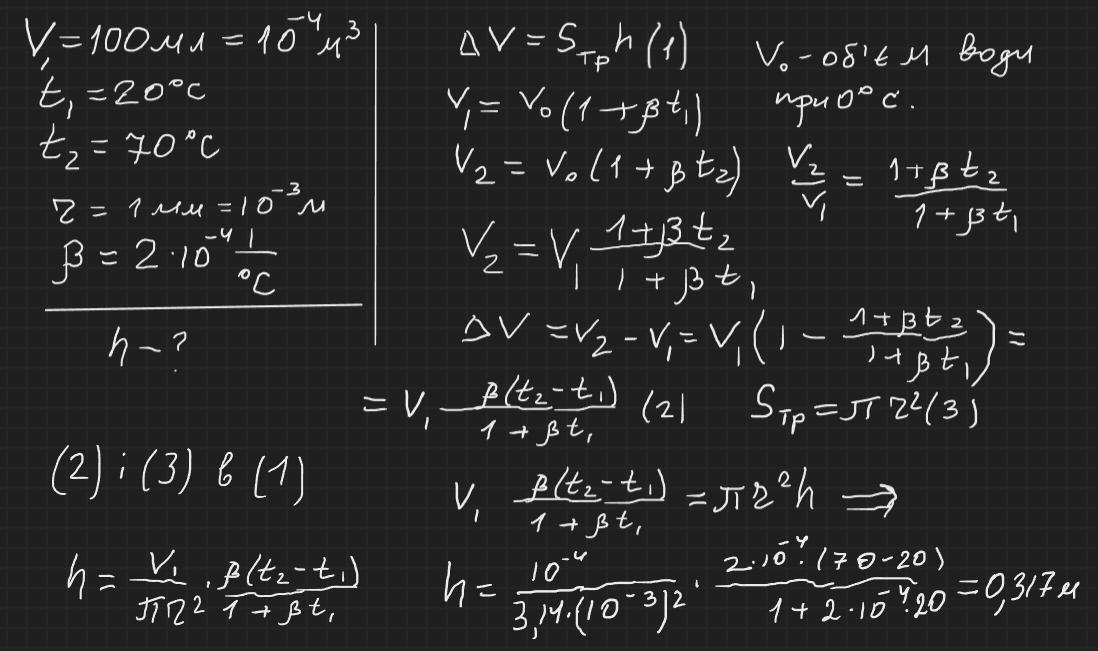 V₁ = 100 мл = 10⁻⁴ м³
t₁ = 20°C
t₂ = 70°C
r = 1 мм = 10⁻³ м
β = 2·10⁻⁴ 1/°C
h – ?
ΔV = Sтр h (1)
V₁ = V₀(1 + βt₁)
V₂ = V₀(1 + βt₂)
V₀ - об'єм води
при 0°C.
V₂/V₁ = (1 + βt₂)/(1 + βt₁)
V₂ = V₁ (1 + βt₂)/(1 + βt₁)
ΔV = V₂ - V₁ = V₁(1 - (1 + βt₂)/(1 + βt₁)) =
= V₁ β(t₂ - t₁)/(1 + βt₁) (2) Sтр = πr² (3)
(2) і (3) в (1)
V₁ β(t₂ - t₁)/(1 + βt₁) = πr²h ⟹
h = V₁/(πr²) · β(t₂ - t₁)/(1 + βt₁)
h = 10⁻⁴/(3,14·(10⁻³)²) · 2·10⁻⁴·(70-20)/(1 + 2·10⁻⁴·20) = 0,317 м